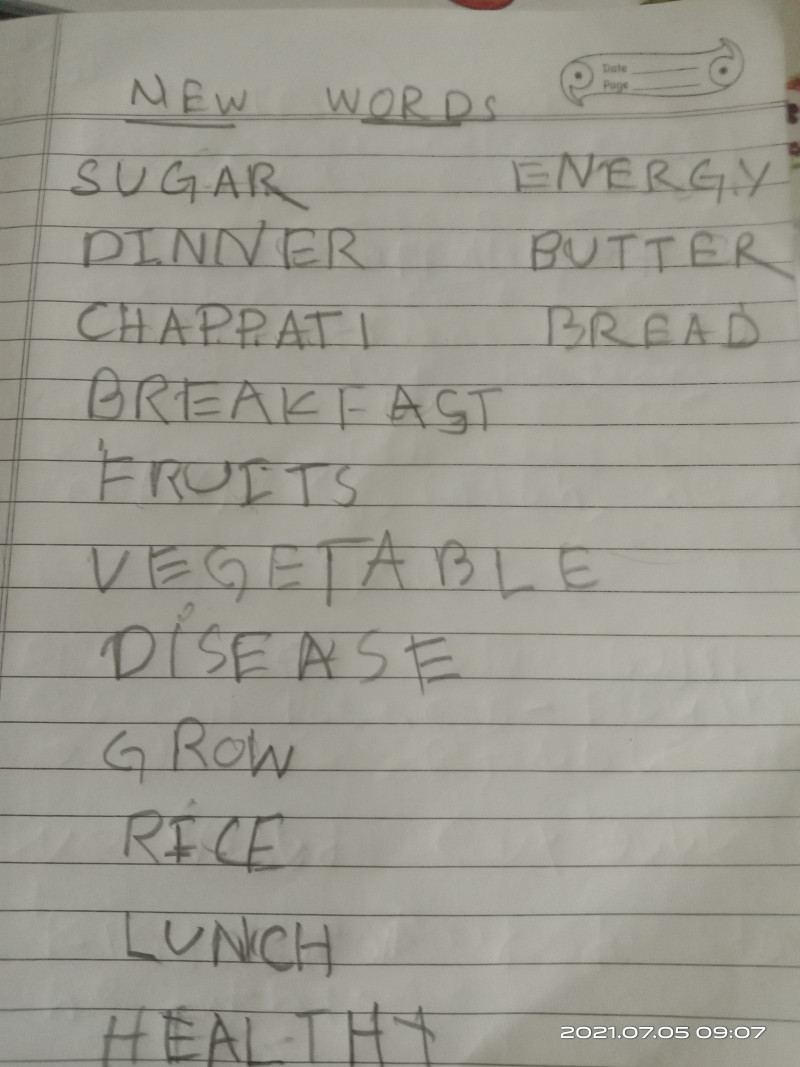 Date
Page
NEW WORDS
SUGAR ENERGY
DINNER BUTTER
CHAPPATI BREAD
BREAKFAST
FRUITS
VEGETABLE
DISEASE
GROW
RICE
LUNCH
HEALTHY
2021.07.05 09:07